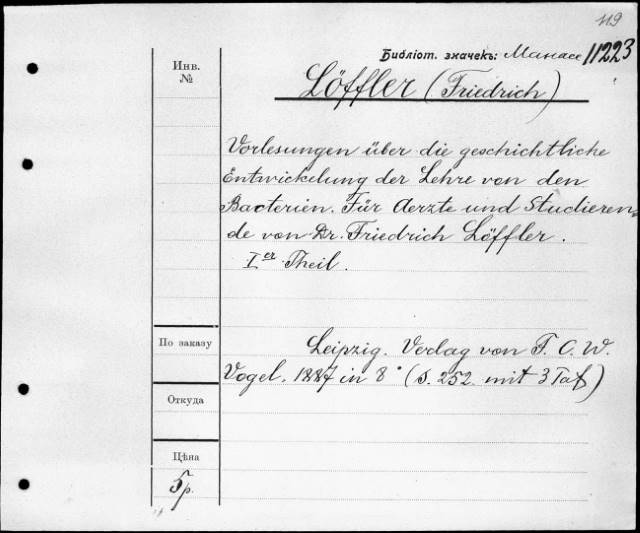 119
Библіот. значекъ: Манасе 11223
Инв.
№
Löffler (Friedrich)
Vorlesungen über die geschichtliche
Entwickelung der Lehre von den
Bacterien. Für Aerzte und Studieren-
de von Dr. Friedrich Löffler.
I er Theil.
По заказу
Leipzig. Verlag von F. C. W.
Vogel. 1887 in 8° (S. 252 mit 3 Taf)
Откуда
Цѣна
5 р.